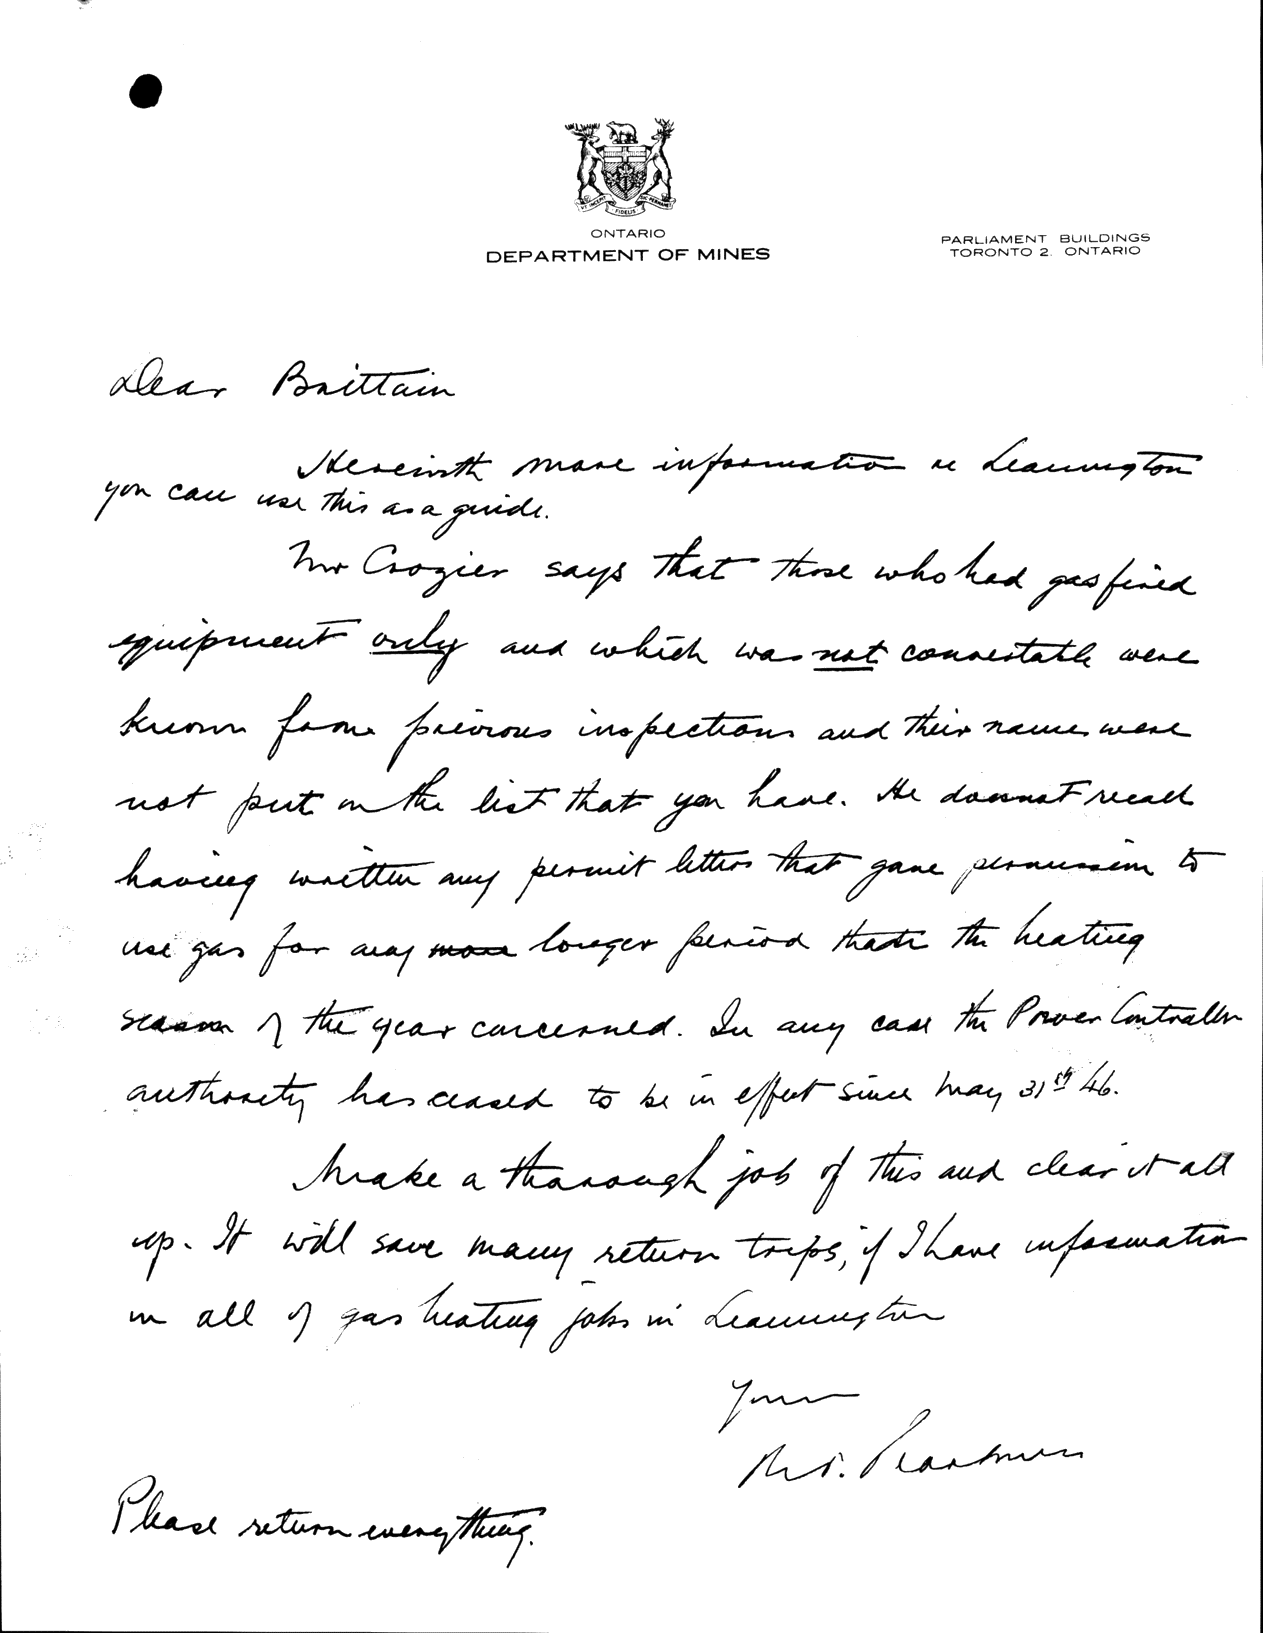 UT INCEPIT FIDELIS SIC PERMANET
ONTARIO
DEPARTMENT OF MINES
PARLIAMENT BUILDINGS
TORONTO 2. ONTARIO
Dear Brittain
Herewith more information re Leamington
you can use this as a guide.
Mr Crozier says that those who had gas fired
equipment only and which was not convertable were
known from previous inspections and their names were
not put on the list that you have. He does not recall
having written any permit letters that gave permission to
use gas for any more longer period than the heating
season of the year concerned. In any case the Power Controller
authority has ceased to be in effect since May 31st 46.
Make a thorough job of this and clear it all
up. It will save many return trips, if I have information
on all of gas heating jobs in Leamington
Yours
Please return everything.